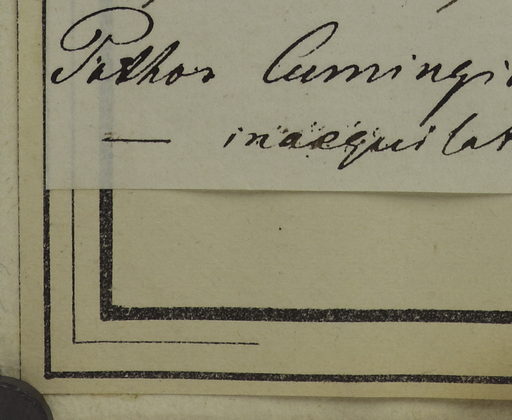 Pothos Cumingi
— inaequilat